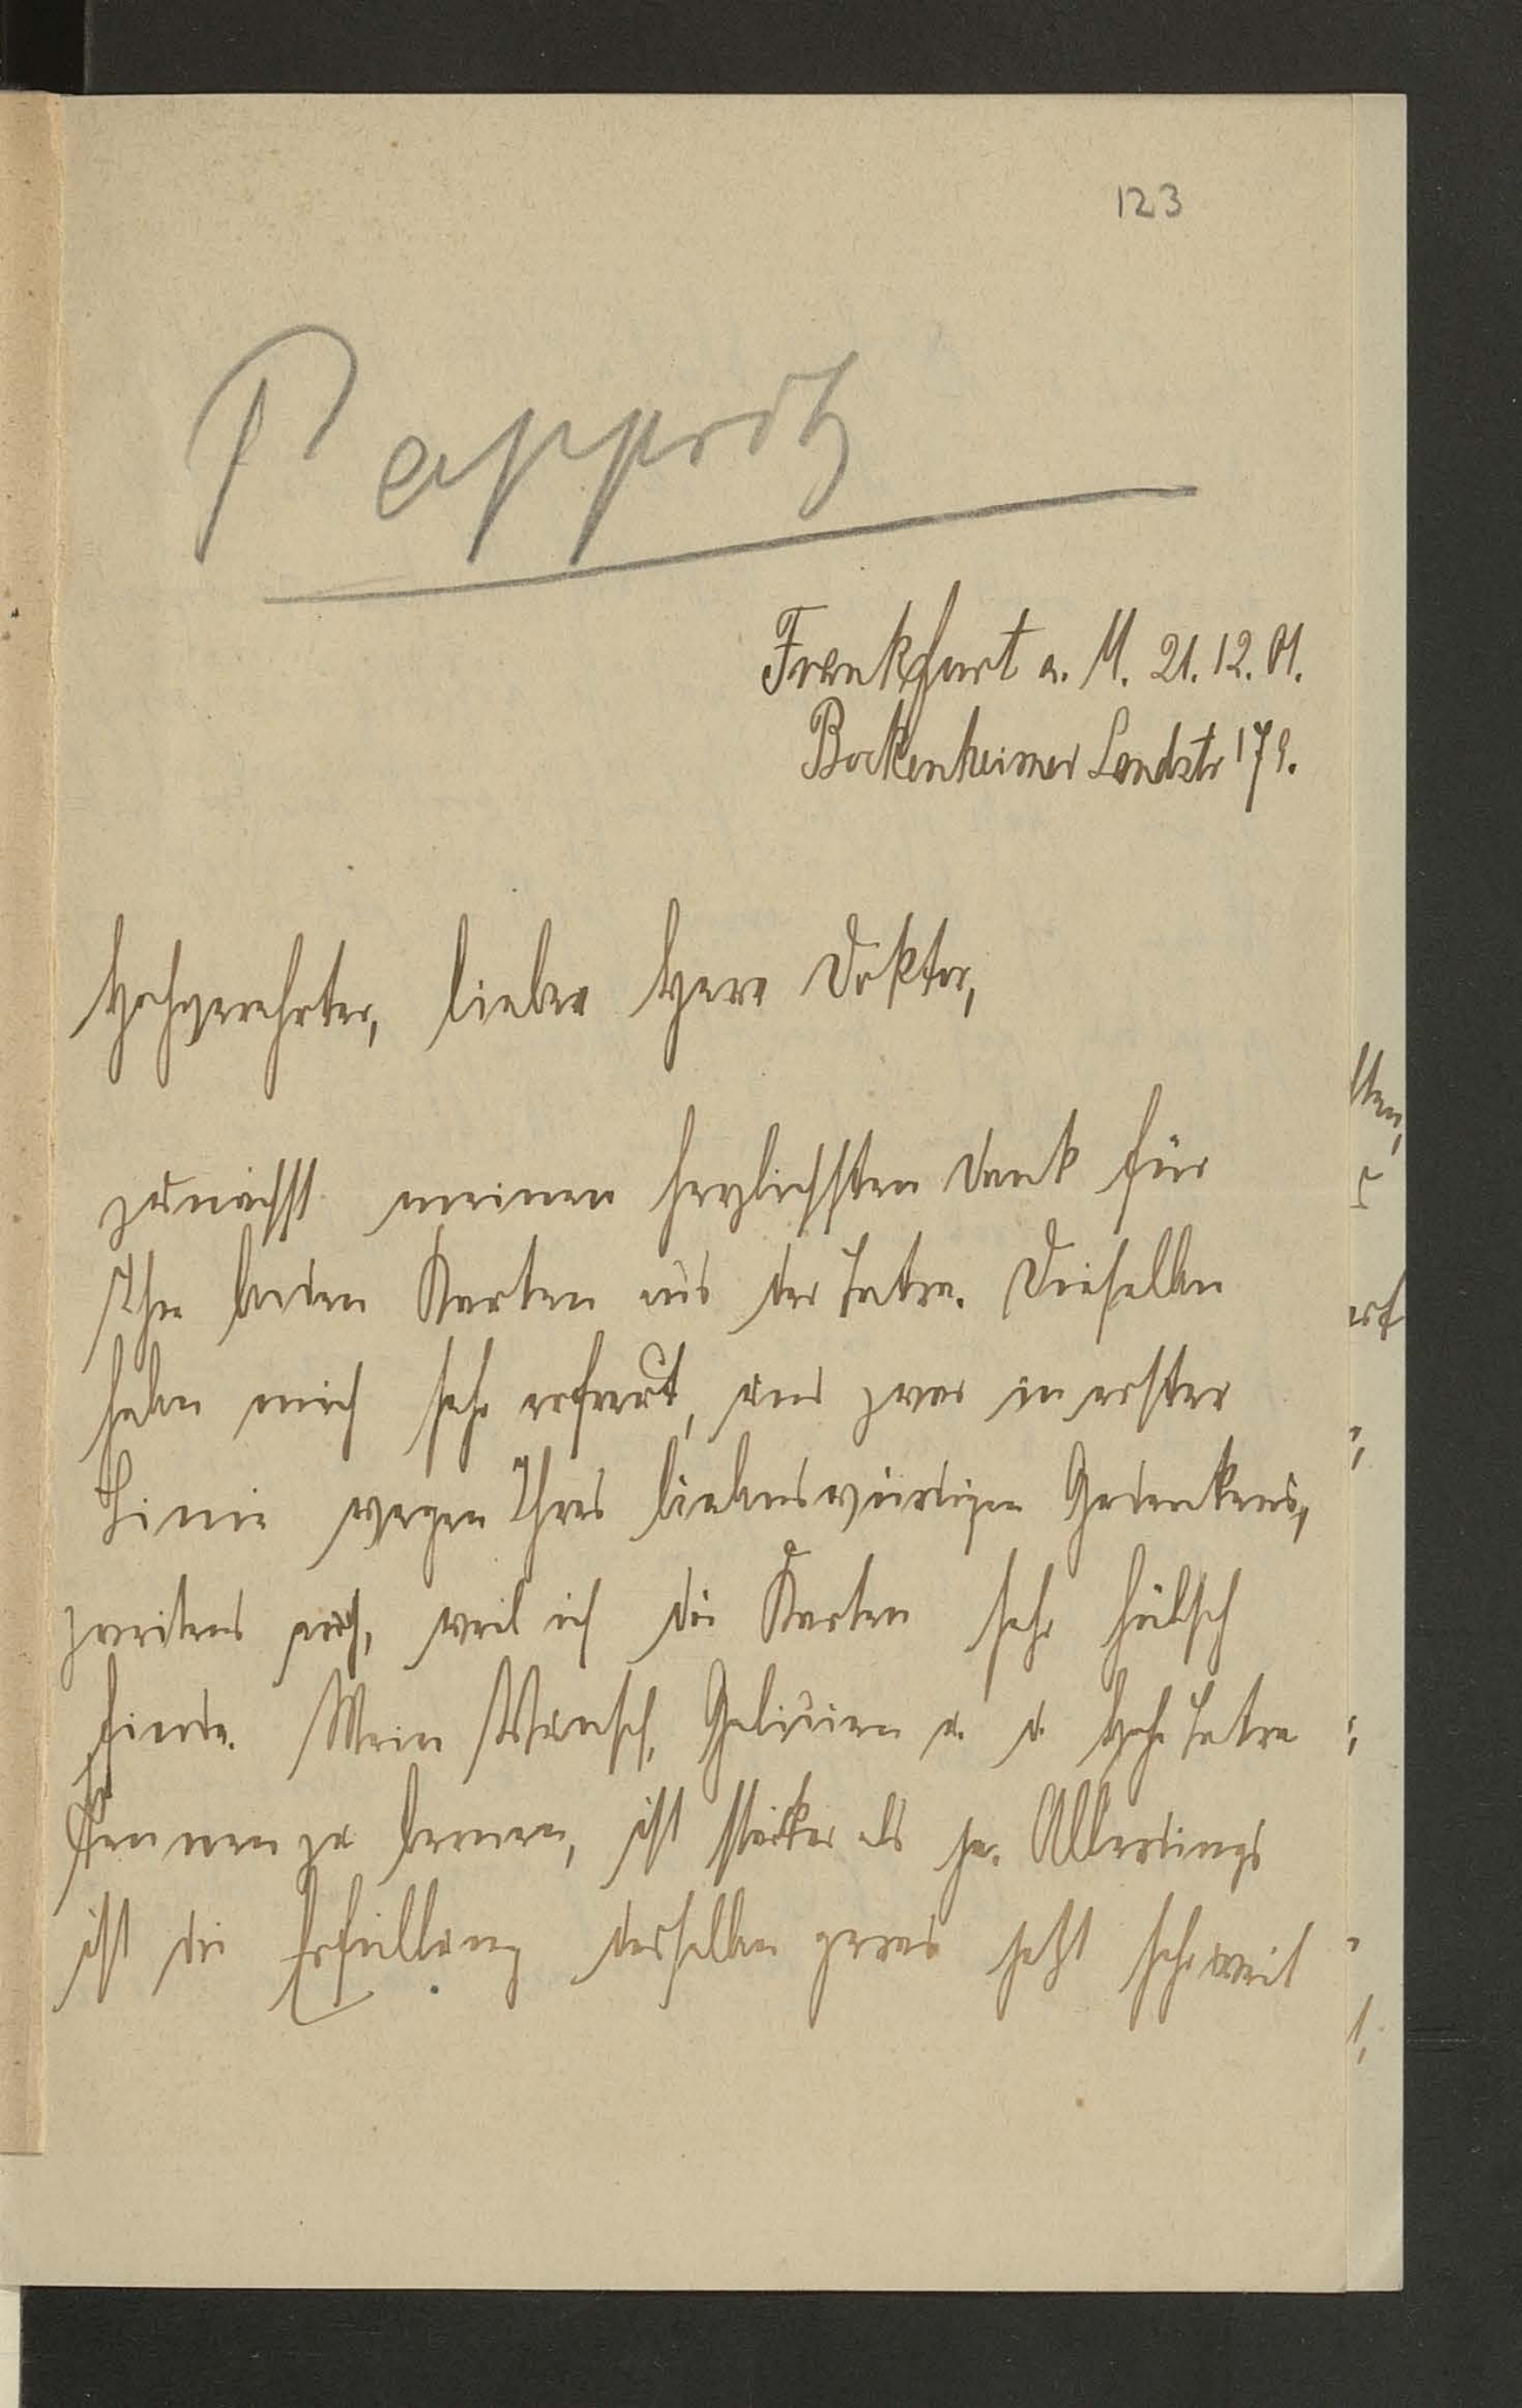 123
Pappritz
Frankfurt a. M. 21. 12. 01.
Bockenheimer Landstr 179.
Hochverehrter, lieber Herr Doktor,
zunächst meinen herzlichsten Dank für
Ihre beiden Karten aus der Tatra. Dieselben
haben mich sehr erfreut, und zwar in erster
Linie wegen Ihres liebenswürdigen Gedenkens,
zweitens auch, weil ich die Karten sehr hübsch
finde. Mein Wunsch, Galizien u. d. Hohe Tatra
kennen zu lernen, ist stärker als je. Allerdings
ist die Erfüllung desselben gerad jetzt sehr weit